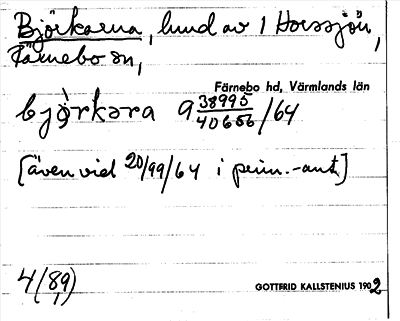 Björkarna, lund av 1 Horssjön,
Färnebo sn,
Färnebo hd, Värmlands län
bjὸrkara 9 38995/40656/64
[även vid 20/99/64 i prim.-ant.]
4/(8,9)
GOTTFRID KALLSTENIUS 1902